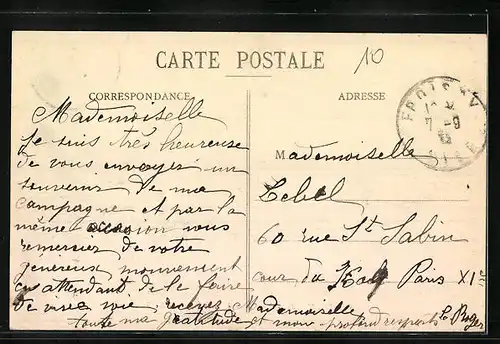 CARTE POSTALE
10
CORRESPONDANCE
ADRESSE
Mademoiselle
Je suis très heureuse
de vous envoyer un
souvenir de ma
campagne et par la
même occasion vous
remercier de votre
genereux mouvement
en attendant de le faire
de vive voie, recevez Mademoiselle
toute ma gratitude et mon profond respects
Mademoiselle
Lebel
60 rue St Sabin
cour du Paris XI